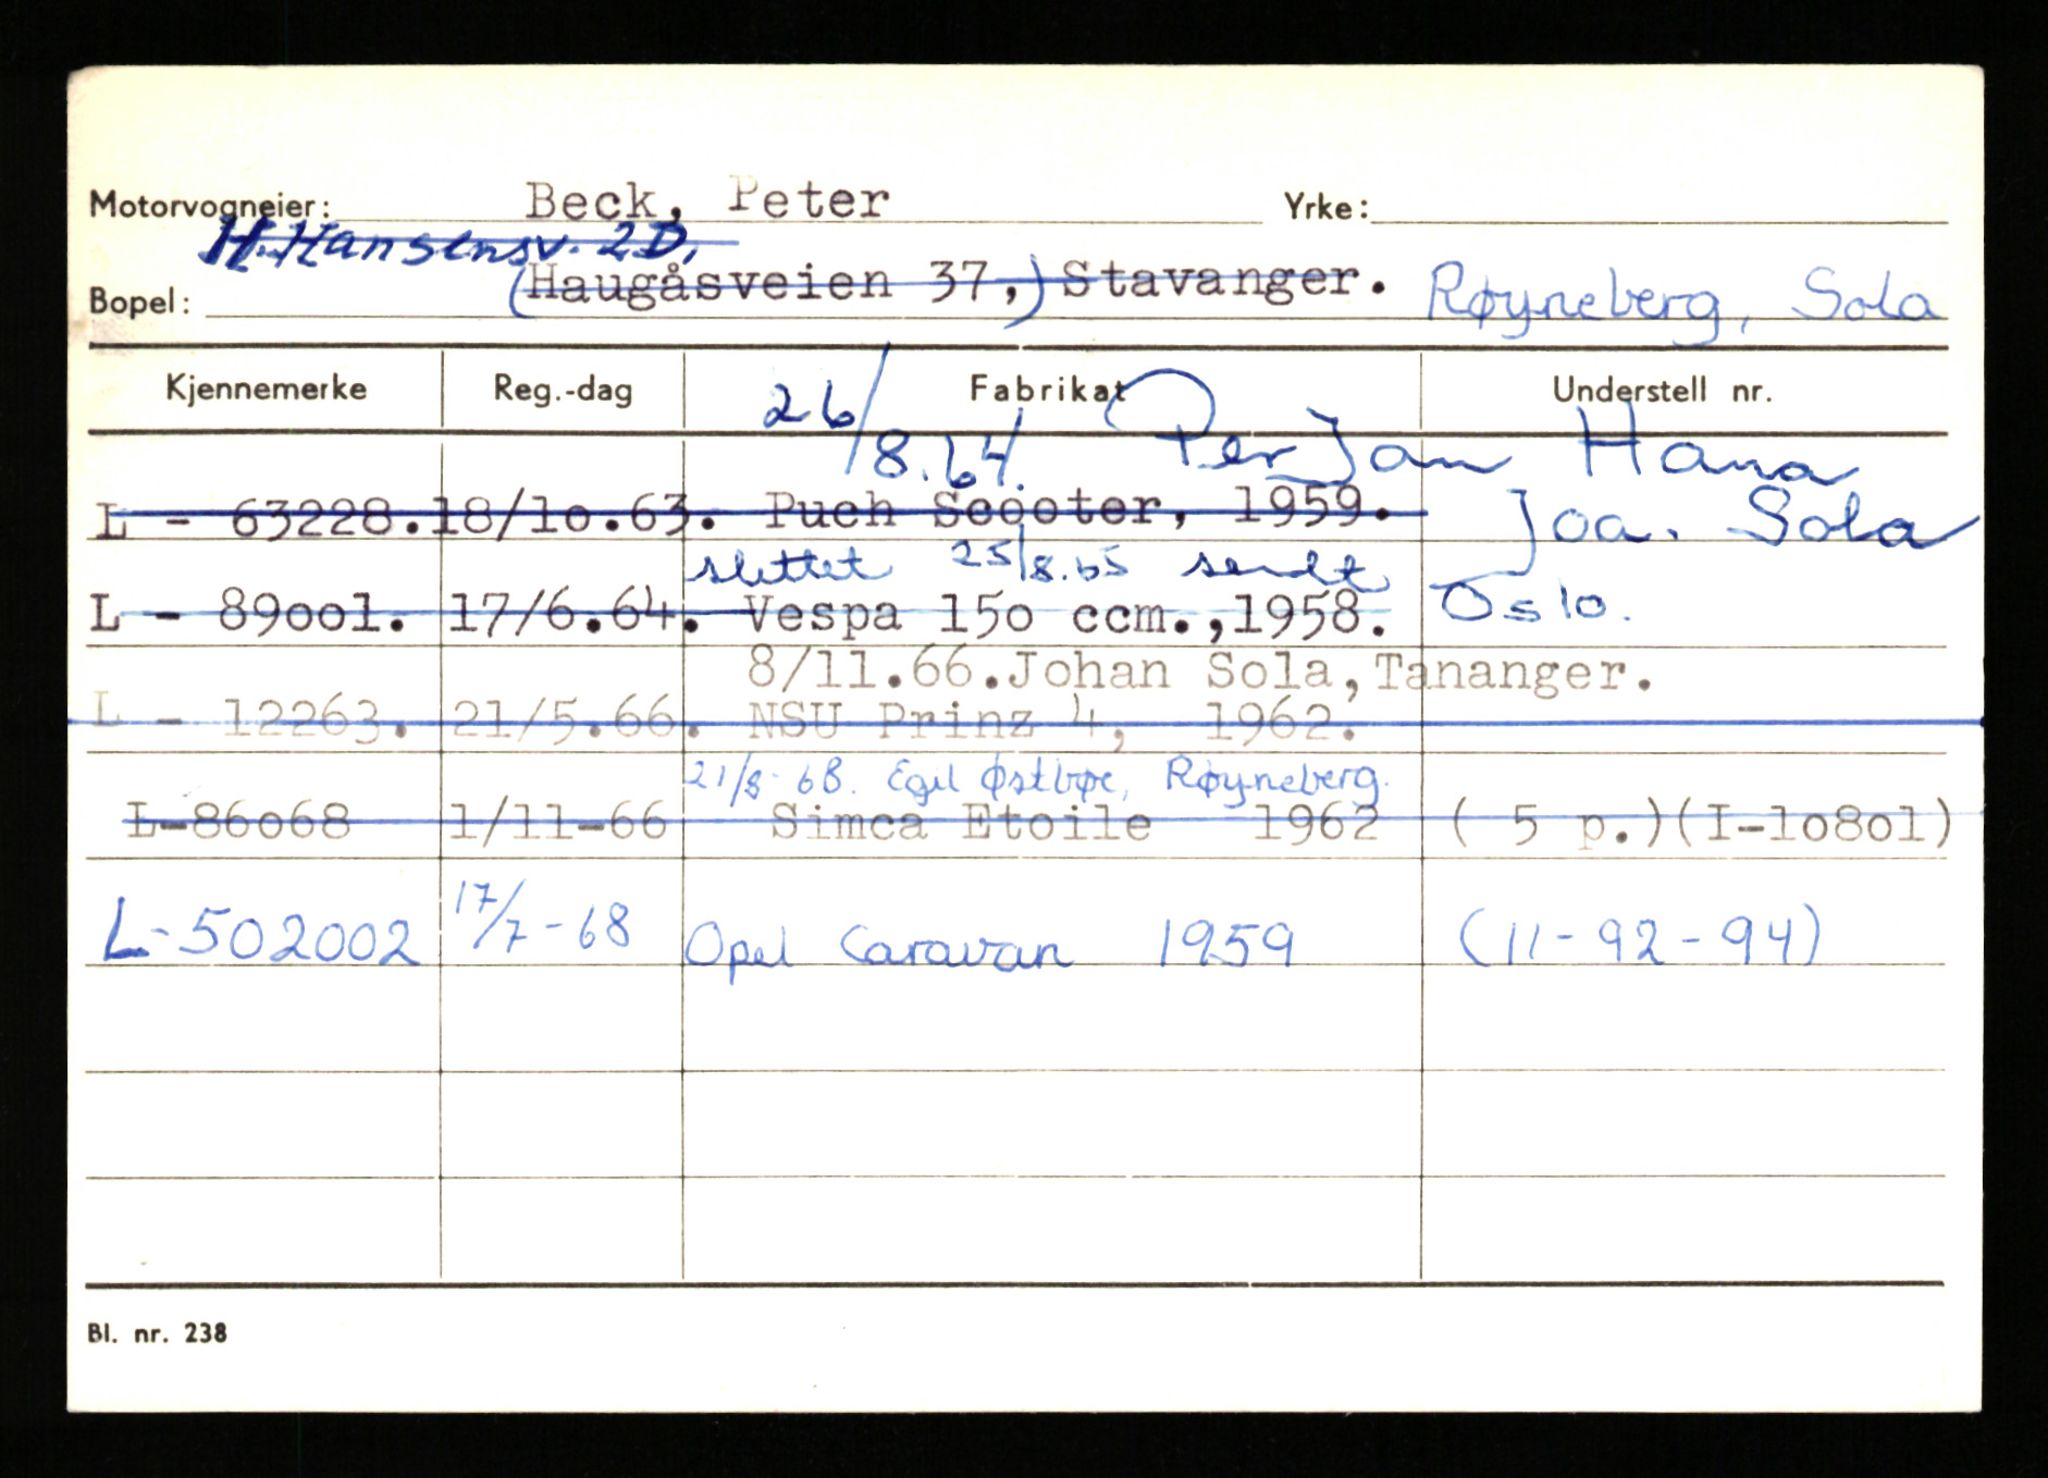 Motorvogneier: Beck, Peter Yrke:
H. Hansensv. 2D,
Bopel: (Haugåsveien 37,) Stavanger. Røyneberg, Sola
Kjennemerke Reg.-dag Fabrikat Understell nr.
26/8.64. Per Jan Hana
L - 63228. 18/10.63. Puch Scooter, 1959. Joa. Sola
slettet 25/8.65 sendt Oslo.
L - 89001. 17/6.64. Vespa 150 ccm.,1958.
8/11.66. Johan Sola, Tananger.
L - 12263. 21/5.66. NSU Prinz 4, 1962.
21/8-68. Egil Østbøe, Røyneberg.
L-86068 1/11-66 Simca Etoile 1962 ( 5 p.)(I-10801)
L-502002 17/7-68 Opel Caravan 1959 (11-92-94)
Bl. nr. 238